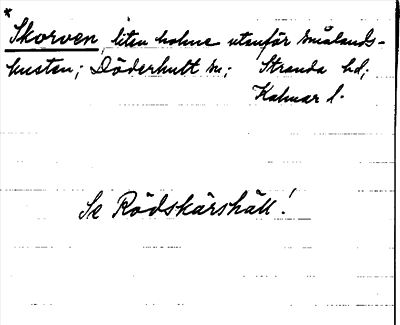 *
Skorven, liten holme utanför smålands-
kusten; Döderhult sn; Stranda hd;
Kalmar l.
Se Rödskärshäll!